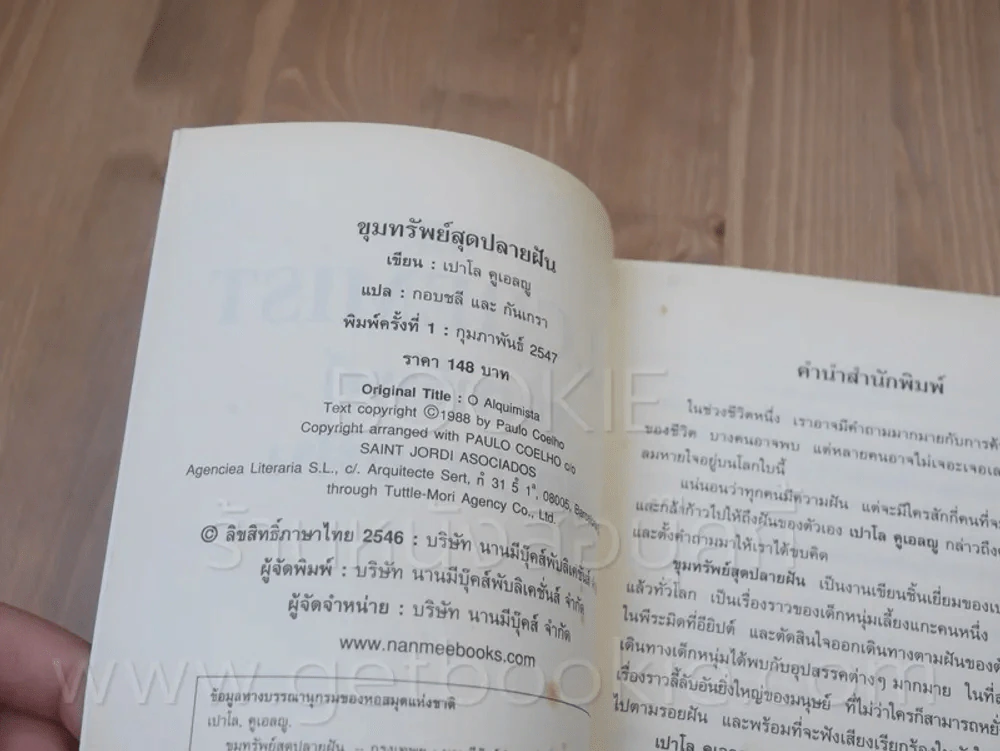 ขุมทรัพย์สุดปลายฝัน
เขียน : เปาโล คูเอลญู
แปล : กอบชลี และ กันเกรา
พิมพ์ครั้งที่ 1 : กุมภาพันธ์ 2547
ราคา 148 บาท
Original Title : O Alquimista
Text copyright ©1988 by Paulo Coelho
Copyright arranged with PAULO COELHO c/o
SAINT JORDI ASOCIADOS
Agenciea Literaria S.L., c/. Arquitecte Sert, 08005, Barcelona
through Tuttle-Mori Agency Co., Ltd.
© ลิขสิทธิ์ภาษาไทย 2546 : บริษัท นานมีบุ๊คส์พับลิเคชั่นส์
ผู้จัดพิมพ์ : บริษัท นานมีบุ๊คส์พับลิเคชั่นส์ จำกัด
ผู้จัดจำหน่าย : บริษัท นานมีบุ๊คส์ จำกัด
www.nanmeebooks.com
ข้อมูลทางบรรณานุกรมของหอสมุดแห่งชาติ
เปาโล, คูเอลญู.
ขุมทรัพย์สุดปลายฝัน
คำนำสำนักพิมพ์
ในช่วงชีวิตหนึ่ง เราอาจมีคำถามมากมายกับการ
ของชีวิต บางคนอาจพบ แต่หลายคนอาจไม่เจอะเจอ
ลมหายใจอยู่บนโลกใบนี้
แน่นอนว่าทุกคนมีความฝัน แต่จะมีใครสักกี่คนที่
และกล้าก้าวไปให้ถึงฝันของตัวเอง เปาโล คูเอลญู กล่าวถึง
และตั้งคำถามมาให้เราได้ขบคิด
ขุมทรัพย์สุดปลายฝัน เป็นงานเขียนชิ้นเยี่ยมของ
แล้วทั่วโลก เป็นเรื่องราวของเด็กหนุ่มเลี้ยงแกะคนหนึ่ง
ในพีระมิดที่อียิปต์ และตัดสินใจออกเดินทางตามฝันของ
เดินทางเด็กหนุ่มได้พบกับอุปสรรคต่างๆ มากมาย ในที่
เรื่องราวลี้ลับอันยิ่งใหญ่ของมนุษย์ ที่ไม่ว่าใครก็สามารถ
ไปตามรอยฝัน และพร้อมที่จะฟังเสียงเรียกร้อง
เปาโล
BOOKIE
ร้านหนังสือบุคกี้
www.getbookie.com